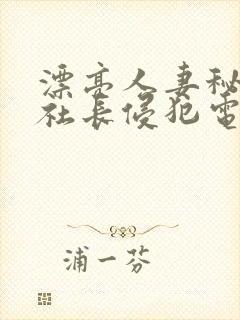 漂亮人妻秘
社长侵犯電
浦一芬